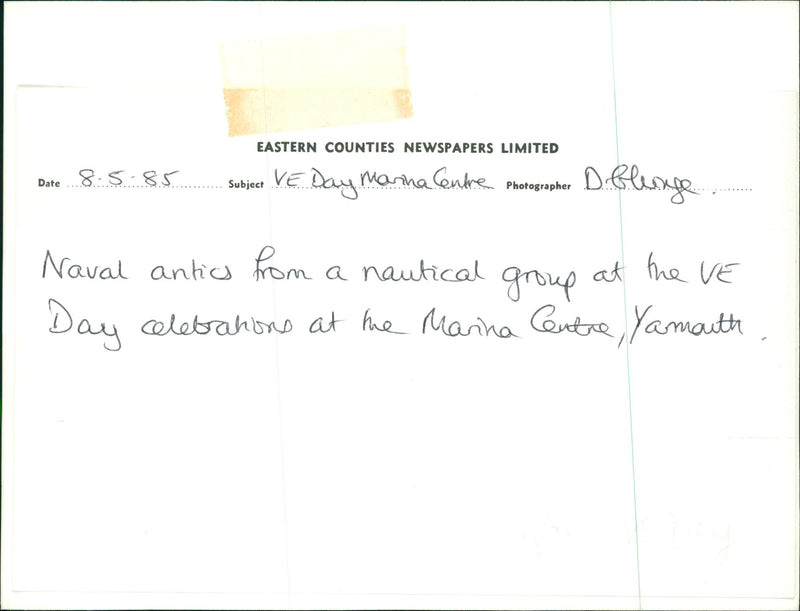 EASTERN COUNTIES NEWSPAPERS LIMITED
Date 8.5.85 Subject VE Day Marina Centre Photographer D.
Naval antics from a nautical group at the VE
Day celebrations at the Marina Centre, Yarmouth.